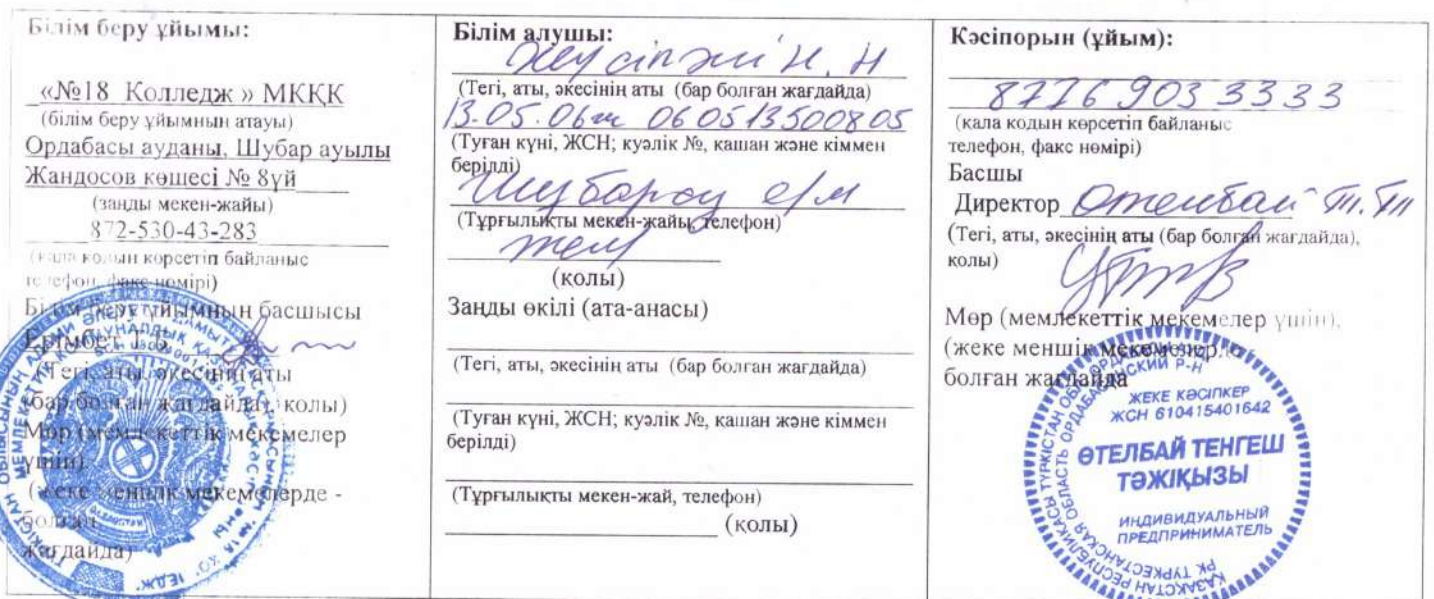 Білім беру ұйымы:
«№18 Колледж » МКҚК
(білім беру ұйымнын атауы)
Ордабасы ауданы, Шубар ауылы
Жандосов көшесі № 8үй
(заңды мекен-жайы)
872-530-43-283
(кала кодын көрсетіп байланыс
телефон, факс нөмірі)
Білім беру ұйымнын басшысы
Ерімбет
(Тегі, аты, әкесінің аты
(бар болған жағдайда), қолы)
Мөр (мемлекеттік мекемелер
үшін),
(жеке меншік мекемелерде -
болған
жағдайда)
Білім алушы:
Н. Н
(Тегі, аты, әкесінің аты (бар болған жағдайда)
13.05.06ж 060513500805
(Туған күні, ЖСН; куәлік №, кашан және кіммен
берілді)
Шубарсу е/м
(Тұрғылықты мекен-жайы, телефон)
(қолы)
Заңды өкілі (ата-анасы)
(Тегі, аты, әкесінің аты (бар болған жағдайда)
(Туған күні, ЖСН; куәлік №, кашан және кіммен
берілді)
(Тұрғылықты мекен-жай, телефон)
(қолы)
Кәсіпорын (ұйым):
8776 903 3333
(кала кодын көрсетіп байланыс
телефон, факс нөмірі)
Басшы
Директор Отелбай Т.Т
(Тегі, аты, әкесінің аты (бар болған жағдайда),
қолы)
Мөр (мемлекеттік мекемелер үшін),
(жеке меншік мекемелерде
болған жағдайда
ЖЕКЕ КӘСІПКЕР
ЖСН 610415401642
ӨТЕЛБАЙ ТЕНГЕШ
ТӘЖІҚЫЗЫ
ИНДИВИДУАЛЬНЫЙ
ПРЕДПРИНИМАТЕЛЬ